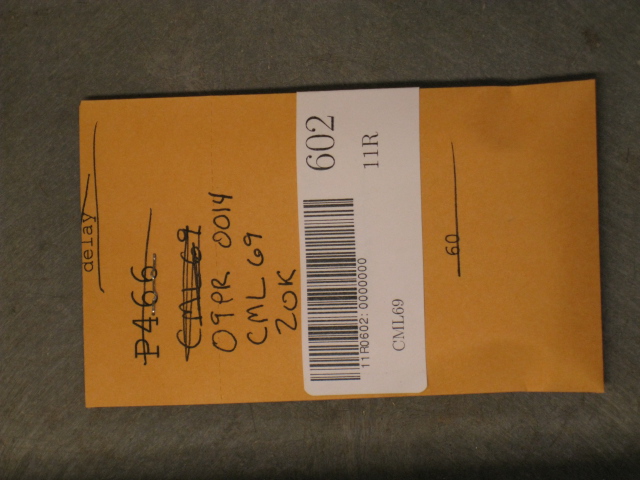 delay
P466
CML69
09PR 0014
CML 69
20K
602
11R
11R0602:00000000
CML69
60